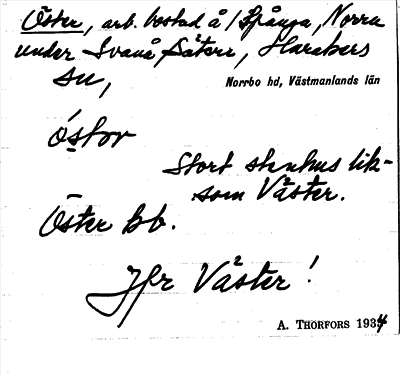 Öster, arb. bostad å /Spånga, Norra
under Svanå Säteri, Harakers
sn,
Norrbo hd, Västmanlands län
östər
Stort stenhus lik-
som Väster.
Öster bb.
Jfr Väster!
A. THORFORS 1934